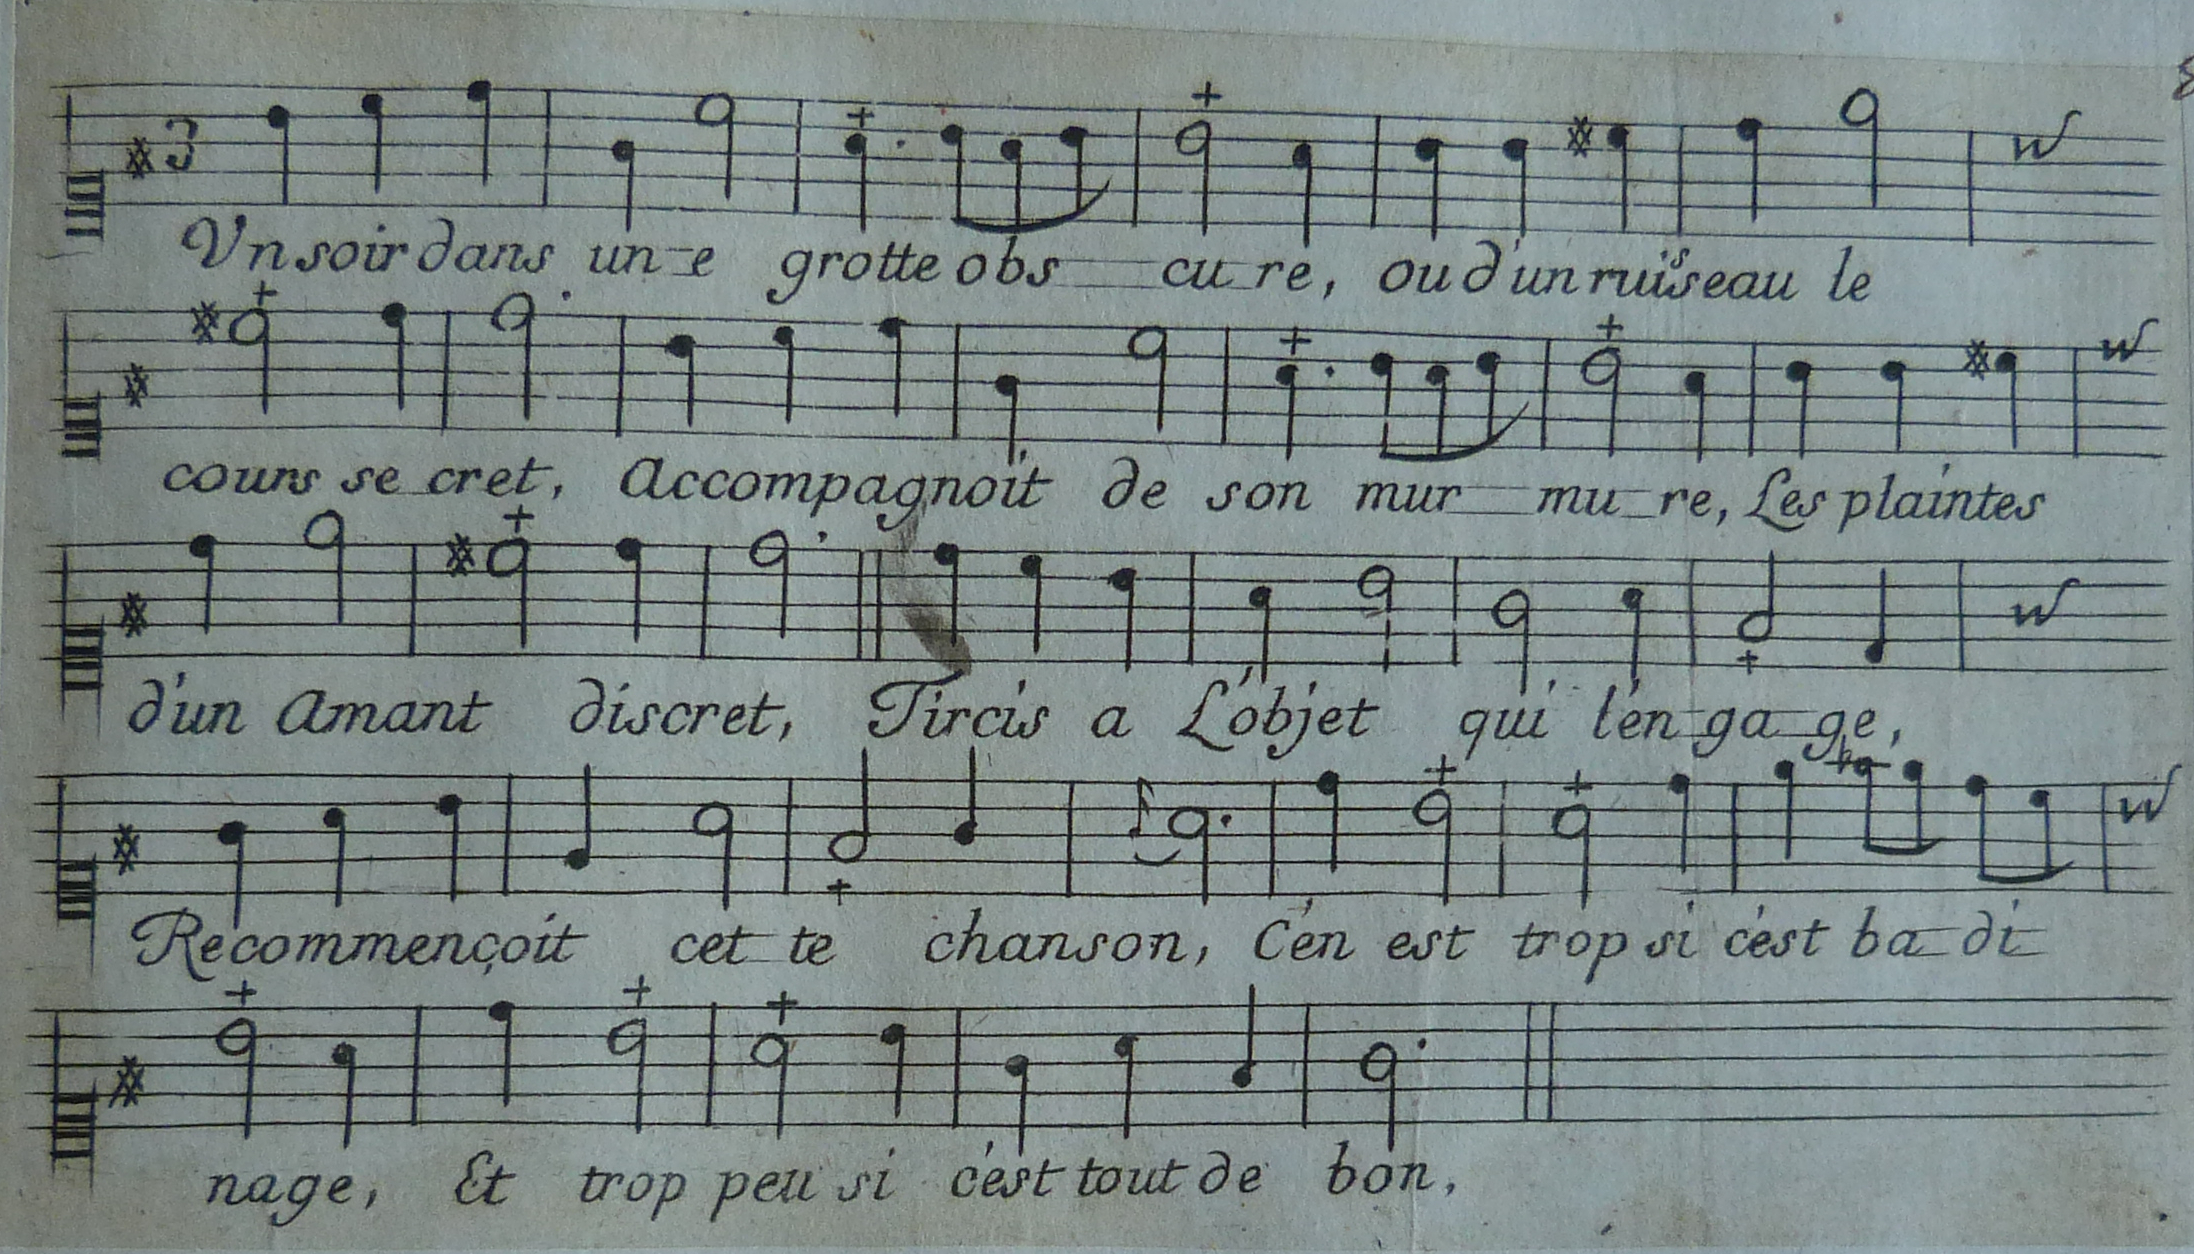 Un soir dans un-e grotte obs cu re, ou d'un ruisseau le
cours se cret, Accompagnoit de son mur mu re, Les plaintes
d'un Amant discret, Tircis a L'objet qui l'en ga ge,
Recommençoit cet te chanson, C'en est trop si c'est ba di
nage, Et trop peu si c'est tout de bon,